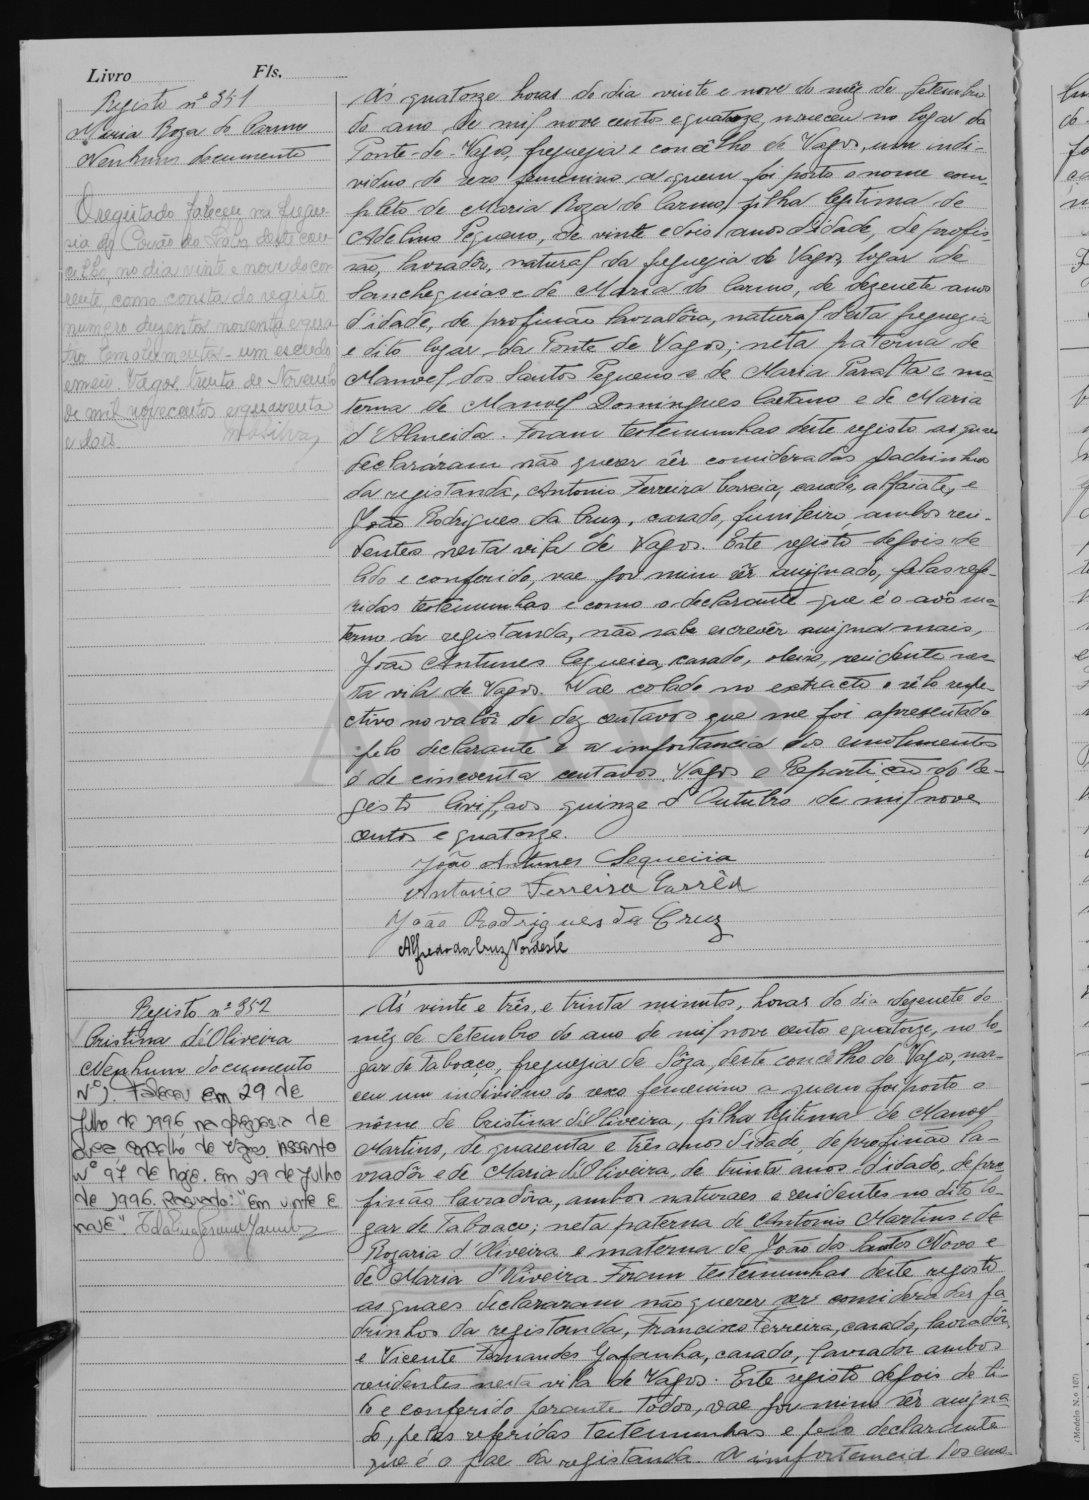 Livro Fls.
Registo nº 351
Maria Roza do Carmo
Nenhum documento
O registado faleceu na fregue-
sia de Covão do Lobo deste con-
celho, no dia vinte e nove do cor-
rente, como consta do registo
numero duzentos noventa e qua-
tro. Emolumentos - um escudo
e meio. Vagos, trinta de Novembro
de mil novecentos e quarenta
e dois.
Ás quatorze horas do dia vinte e nove do mêz de Setembro
do ano de mil nove centos e quatorze, nasceu no logar da
Ponte-de-Vagos, freguezia e concêlho de Vagos, um indi-
viduo do sexo femenino, a quem foi posto o nome com-
pleto de Maria Roza do Carmo, filha legitima de
Adelino Pequeno, de vinte e dois anos d'idade, de profis-
são, lavradôr, natural da freguezia de Vagos, logar de
Sanchequias e de Maria do Carmo, de dezenete anos
d'idade, de profissão lavradôra, natural desta freguezia
e dito logar da Ponte de Vagos; neta paterna de
Manoel dos Santos Pequeno e de Maria Paralta e ma-
terna de Manoel Domingues Caetano e de Maria
d'Almeida. Foram testemunhas deste registo as quaes
declaráram não querer sêr consideradas padrinhos
da registanda, Antonio Ferreira Correia, casado, alfaiate, e
João Rodrigues da Cruz, casado, funileiro, ambos resi-
dentes nesta vila de Vagos. Este registo depois de
lido e conferido, vae por mim sêr assignado, pelas refe-
ridas testemunhas e como o declarante que é o avô ma-
terno da registanda, não sabe escrevêr assigna mais,
João Antunes Cequeira, casado, oleiro, residente nes-
ta vila de Vagos. Vae colado no extracto o sêlo respe-
ctivo no valôr de dez centavos que me foi apresentado
pelo declarante e a importancia dos emolumentos
é de cincoenta centavos. Vagos e Repartição do Re-
gisto Civil, aos quinze d'Outubro de mil nove
centos e quatorze.
João Antunes Sequeiia
Antonio Ferreira Corrêa
João Rodrigues da Cruz
Alfredo da Cruz Nordeste
Registo nº 352
Cristina d'Oliveira
Nenhum documento
Nº 1. Faleceu em 29 de
Julho de 1996 na freguesia de
concelho de Vagos. Assento
nº 97 de hoje. Em 29 de Julho
de 1996. "Em vinte e
nove".
Ás vinte e três, e trinta minutos, horas do dia dezenete do
mêz de Setembro do ano de mil nove cento e quatorze, no lo-
gar de Taboaço, freguezia de Sôza, deste concêlho de Vagos, nas-
ceu um individuo do sexo femenino a quem foi posto o
nôme de Cristina d'Oliveira, filha legitima de Manoel
Martins, de quarenta e três anos d'idade, de profissão la-
vradôr e de Maria d'Oliveira, de trinta anos d'idade, de pro-
fissão lavradôra, ambos naturaes e residentes no dito lo-
gar de Taboaço; neta paterna de Antonio Martins e de
Rozaria d'Oliveira e materna de João dos Santos Novo e
de Maria d'Oliveira. Foram testemunhas deste registo
as quaes declararam não querer ser consideradas pa-
drinhos da registanda, Francisco Ferreira, casado, lavradôr,
e Vicente Fernandes Gafanha, casado, lavrador ambos
residentes nesta vila de Vagos. Este registo depois de li-
do e conferido perante todos, vae por mim sêr assigna-
do, pelas referidas testemunhas e pelo declarante
que é o pae da registanda. A importancia dos emo-
(Modelo N.o 107)